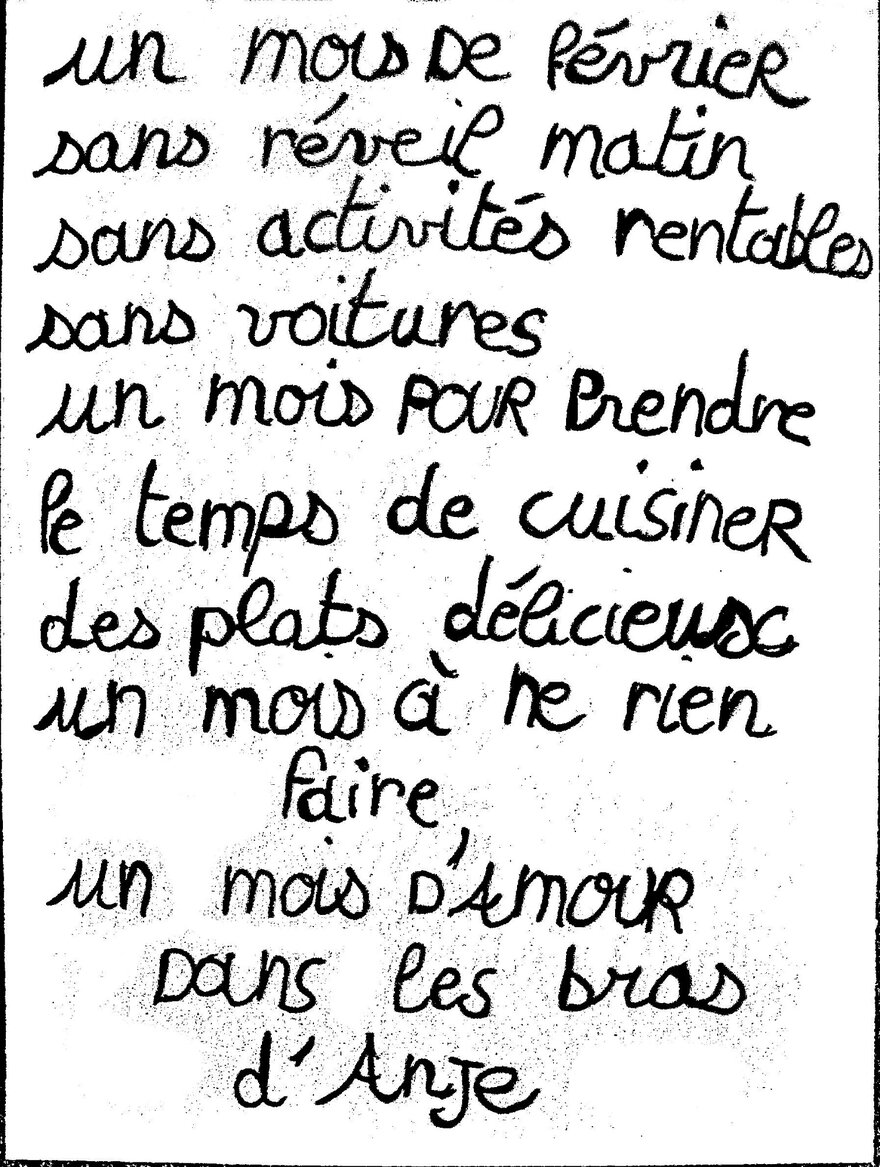 un mois De février
sans réveil matin
sans activités rentables
sans voitures
un mois POUR Prendre
le temps de cuisiner
des plats délicieux
un mois à ne rien
faire,
un mois D'AMOUR
Dans les bras
d'Anje